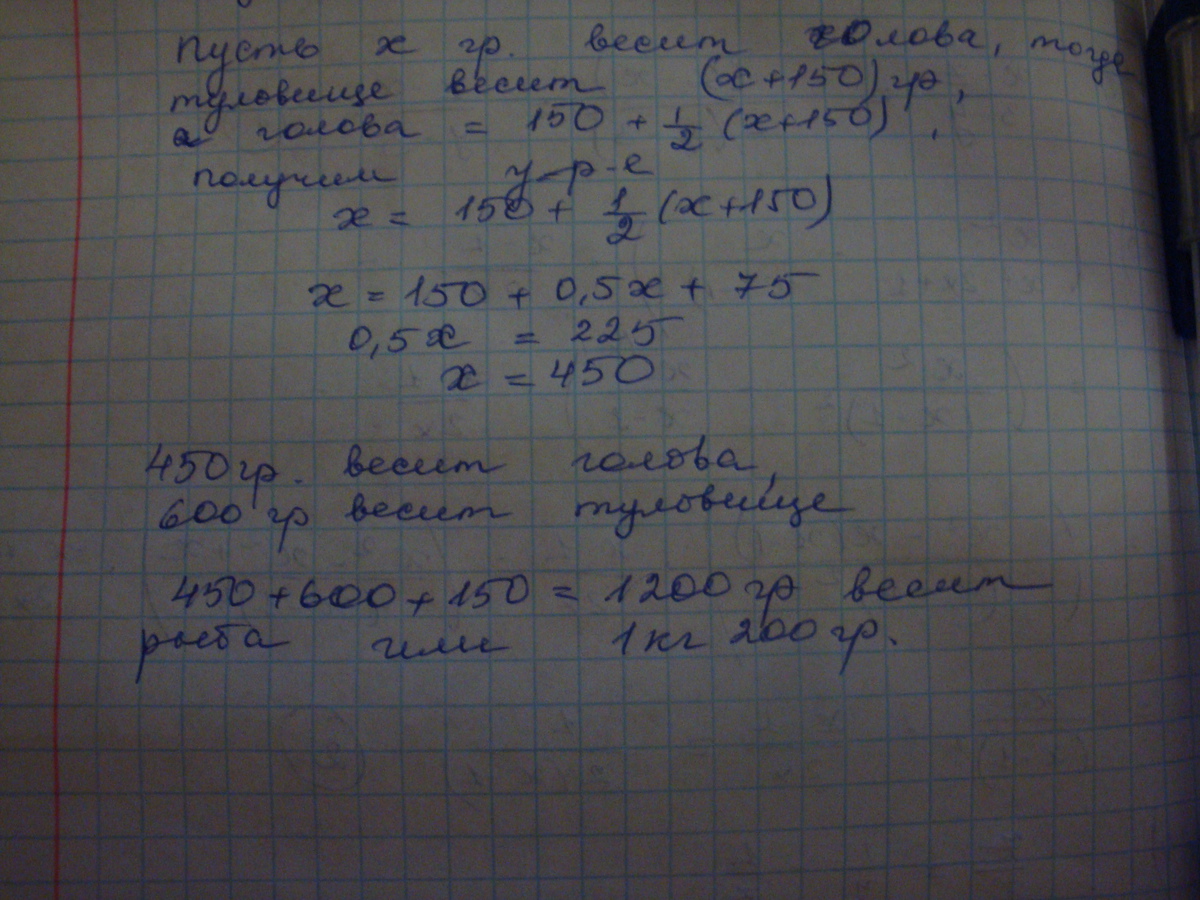 Пусть x гр. весит голова, тогда
туловище весит (x+150) гр,
а голова = 150 + 1/2 (x+150),
получим ур-е
x = 150 + 1/2 (x+150)
x = 150 + 0,5x + 75
0,5x = 225
x = 450
450 гр. весит голова,
600 гр весит туловище
450 + 600 + 150 = 1200 гр весит
рыба или 1 кг 200 гр.